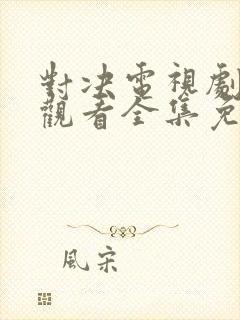 對决電視劇
觀看全集免
風宋